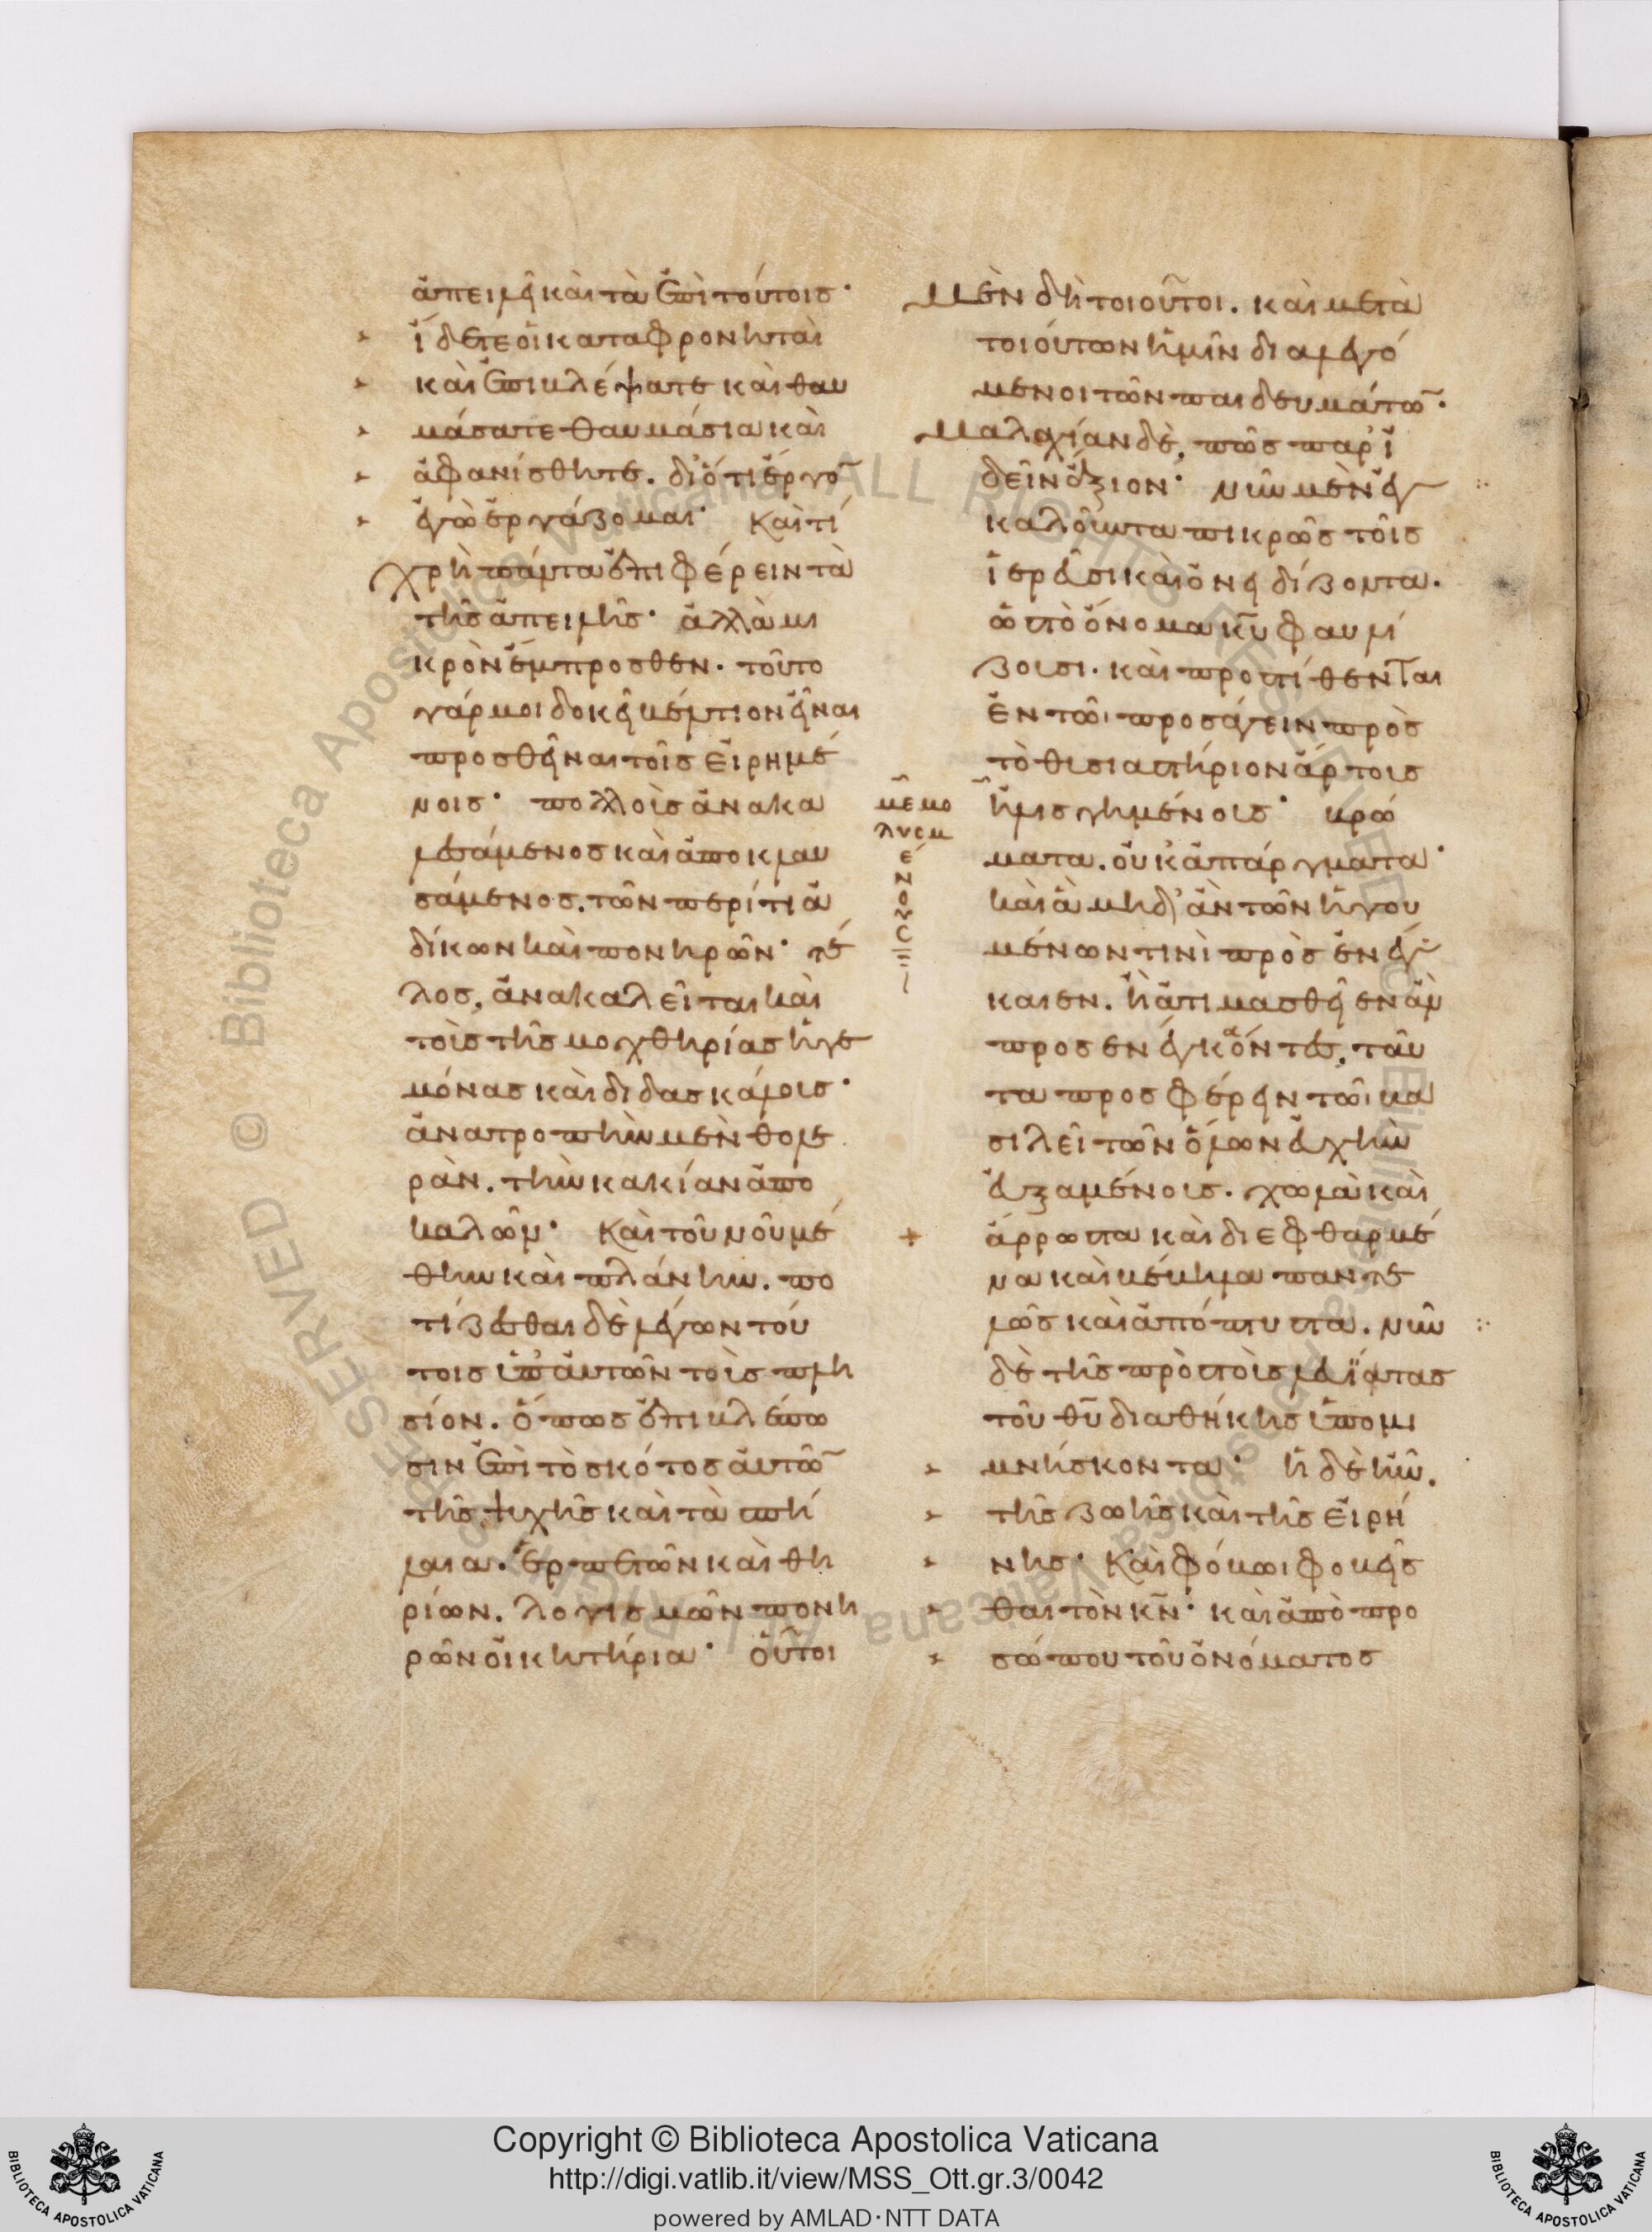 ἀπειλεῖ καὶ τὰ ἐπὶ τούτοις·
ἴδετε οἱ καταφρονηταὶ
καὶ ἐπιβλέψατε καὶ θαυ
μάσατε θαυμάσια καὶ
ἀφανίσθητε. διότι ἔργο̅
ἐγὼ ἐργάζομαι· Καὶ τί
χρὴ πάντα ἐπιφέρειν τὰ
τῆς ἀπειλῆς· ἀλλὰ μι
κρὸν ἔμπροσθεν. τοῦτο
γάρ μοι δοκεῖ βέλτιον εἶναι
προσθεῖναι τοῖς εἰρημέ
νοις· πολλοῖς ἀνακα
λεσάμενος καὶ ἀποκλαυ
σάμενος. τῶν περί τι ἀ
δίκων καὶ πονηρῶν· τέ
λος, ἀνακαλεῖται καὶ
τοῖς τῆς μοχθηρίας ἡγε
μόνας καὶ διδασκάλοις·
ἀνατροπὴν μὲν θολε
ρὰν. τὴν κακίαν ἀπο
καλῶν· Καὶ τοῦ νοῦ μέ
θην καὶ πλάνην. πο
τίζεσθαι δὲ λέγων τού
τοις ὑπ' αὐτῶν τοῖς πλη
σίον. ὅπως ἐπιβλέπω
σιν ἐπὶ τὸ σκότος αὐτῶ̅
τῆς ψυχῆς καὶ τὰ σπή
λαια. ἑρπετῶν καὶ θη
ρίων. λογισμῶν πονη
ρῶν οἰκητήρια· οὗτοι
μεμο
λυσμ
έ
ν
ο
υ
ς
μὲν δὴ τοιοῦτοι. καὶ μετὰ
τοιούτων ἡμῖν διαλεγό
μενοι τῶν παιδευμάτω̅·
Μαλαχίαν δὲ, πῶς παρϊ
δεῖν ἄξιον· νῦν μὲν ἐγ
καλοῦντα πικρῶς τοῖς
ἱερεῦσι καὶ ὀνειδίζοντα.
ὡς τὸ ὄνομα κ̅υ̅ φαυλί
ζουσι. καὶ προστίθενται
ἐν τῶι προσάγειν πρὸς
τὸ θυσιαστήριον ἄρτους
ἠλισγημένους· βρώ
ματα. οὐκ ἀπάργματα·
καὶ ἃ μηδ' ἂν τῶν ἡγου
μένων τινὶ πρὸσενεγ
καιεν. ἢ ἀτιμασθεῖεν ἂν
προσενεγκόντες, ταῦ
τα προσφέρειν τῶι βα
σιλεῖ τῶν ὅλων εὐχὴν
εὐξαμένους. χωλὰ καὶ
ἄρρωστα καὶ διεφθαρμέ
να καὶ βέβηλα παντε
λῶς καὶ ἀπόπτυστα. νῦν
δὲ τῆς πρὸς τοὺς λευΐτας
τοῦ θ̅υ̅ διαθήκης ὑπομι
μνήσκοντα· ἡ δὲ ἦν.
τῆς ζωῆς καὶ τῆς εἰρή
νης· Καὶ φόβωι φοβεῖσ
θαι τὸν κ̅ν̅· καὶ ἀπὸ προ
σώπου τοῦ ὀνόματος
Copyright © Biblioteca Apostolica Vaticana
http://digi.vatlib.it/view/MSS_Ott.gr.3/0042
powered by AMLAD·NTT DATA